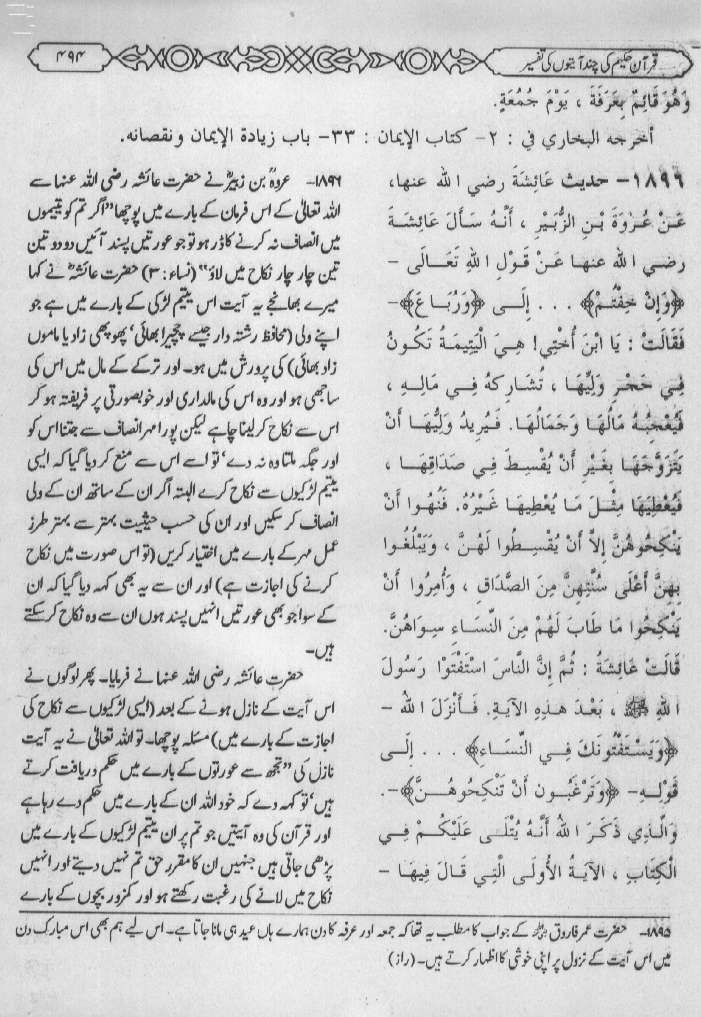 قرآن حکیم کی چند آیتوں کی تفسیر
۴۹۴
وَهُوَ قَائِمٌ بِعَرَفَةَ ، يَوْمَ جُمُعَةٍ.
أخرجه البخاري في : ٢- كتاب الإيمان : ٣٣- باب زيادة الإيمان ونقصانه.
١٨٩٦- حديث عَائِشَةَ رضي الله عنها،
عَنْ عُرْوَةَ بْنِ الزُّبَيْرِ ، أَنَّهُ سَأَلَ عَائِشَةَ
رضي الله عنها عَنْ قَوْلِ اللهِ تَعَالَى -
﴿وَإِنْ خِفْتُمْ﴾ . . . إِلَى ﴿وَرُبَاعَ﴾-
فَقَالَتْ : يَا ابْنَ أُخْتِي! هِيَ الْيَتِيمَةُ تَكُونُ
فِي حَجْرِ وَلِيِّهَا ، تُشَارِكُهُ فِي مَالِهِ ،
فَيُعْجِبُهُ مَالُهَا وَجَمَالُهَا. فَيُرِيدُ وَلِيُّهَا أَنْ
يَتَزَوَّجَهَا بِغَيْرِ أَنْ يُقْسِطَ فِي صَدَاقِهَا ،
فَيُعْطِيَهَا مِثْلَ مَا يُعْطِيهَا غَيْرُهُ. فَنُهُوا أَنْ
يَنْكِحُوهُنَّ إِلاَّ أَنْ يُقْسِطُوا لَهُنَّ ، وَيَبْلُغُوا
بِهِنَّ أَعْلَى سُنَّتِهِنَّ مِنَ الصَّدَاقِ ، وَأُمِرُوا أَنْ
يَنْكِحُوا مَا طَابَ لَهُمْ مِنَ النِّسَاءِ سِوَاهُنَّ.
قَالَتْ عَائِشَةُ : ثُمَّ إِنَّ النَّاسَ اسْتَفْتَوْا رَسُولَ
اللهِ ﷺ ، بَعْدَ هَذِهِ الآيَةِ. فَأَنْزَلَ اللهُ -
﴿وَيَسْتَفْتُونَكَ فِي النِّسَاءِ﴾ . . . إِلَى
قَوْلِهِ- ﴿وَتَرْغَبُونَ أَنْ تَنْكِحُوهُنَّ﴾-.
وَالَّذِي ذَكَرَ اللهُ أَنَّهُ يُتْلَى عَلَيْكُمْ فِي
الْكِتَابِ ، الآيَةُ الأُولَى الَّتِي قَالَ فِيهَا -
۱۸۹۶- عروہؒ بن زبیرؓ نے حضرت عائشہ رضی اللہ عنہا سے
اللہ تعالیٰ کے اس فرمان کے بارے میں پوچھا "اگر تم کو یتیموں
میں انصاف نہ کرنے کا ڈر ہو تو جو عورتیں پسند آئیں دو دو تین
تین چار چار نکاح میں لاؤ" (نساء: ۳) حضرت عائشہؓ نے کہا
میرے بھانجے یہ آیت اس یتیم لڑکی کے بارے میں ہے جو
اپنے ولی (محافظ رشتہ دار جیسے چچیرا بھائی' پھوپھی زاد یا ماموں
زاد بھائی) کی پرورش میں ہو۔ اور ترکے کے مال میں اس کی
ساجھی ہو اور وہ اس کی مالداری اور خوبصورتی پر فریفتہ ہو کر
اس سے نکاح کر لینا چاہے لیکن پورا مہر انصاف سے جتنا اس کو
اور جگہ ملتا وہ نہ دے' تو اسے اس سے منع کر دیا گیا کہ ایسی
یتیم لڑکیوں سے نکاح کرے البتہ اگر ان کے ساتھ ان کے ولی
انصاف کر سکیں اور ان کی حسب حیثیت بہتر سے بہتر طرز
عمل مہر کے بارے میں اختیار کریں (تو اس صورت میں نکاح
کرنے کی اجازت ہے) اور ان سے یہ بھی کہہ دیا گیا کہ ان
کے سوا جو بھی عورتیں انہیں پسند ہوں ان سے وہ نکاح کر سکتے
ہیں۔
حضرت عائشہ رضی اللہ عنہا نے فرمایا۔ پھر لوگوں نے
اس آیت کے نازل ہونے کے بعد (ایسی لڑکیوں سے نکاح کی
اجازت کے بارے میں) مسئلہ پوچھا۔ تو اللہ تعالیٰ نے یہ آیت
نازل کی "تجھ سے عورتوں کے بارے میں حکم دریافت کرتے
ہیں' تو کہہ دے کہ خود اللہ ان کے بارے میں حکم دے رہا ہے
اور قرآن کی وہ آیتیں جو تم پر ان یتیم لڑکیوں کے بارے میں
پڑھی جاتی ہیں جنہیں ان کا مقرر حق تم نہیں دیتے اور انہیں
نکاح میں لانے کی رغبت رکھتے ہو اور کمزور بچوں کے بارے
۱۸۹۵- حضرت عمر فاروق رضی اللہ عنہ کے جواب کا مطلب یہ تھا کہ جمعہ اور عرفہ کا دن ہمارے ہاں عید ہی مانا جاتا ہے۔ اس لیے ہم بھی اس مبارک دن
میں اس آیت کے نزول پر اپنی خوشی کا اظہار کرتے ہیں۔ (راز)